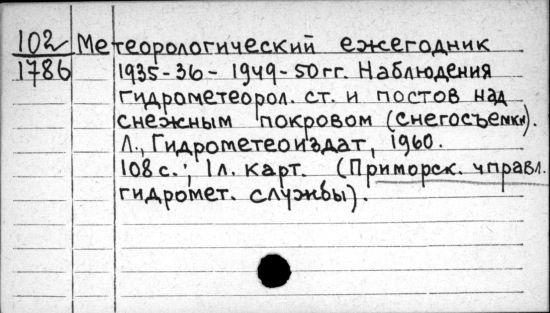 102 Метеорологический ежегодник
1786 1935-36 - 1949-50гг. Наблюдения
гидрометеорол. ст. и постов над
снежным покровом (снегосъемки).
Л., Гидрометеоиздат, 1960.
108 с.; 1 л. карт. (Приморск. управл.
гидромет. службы).